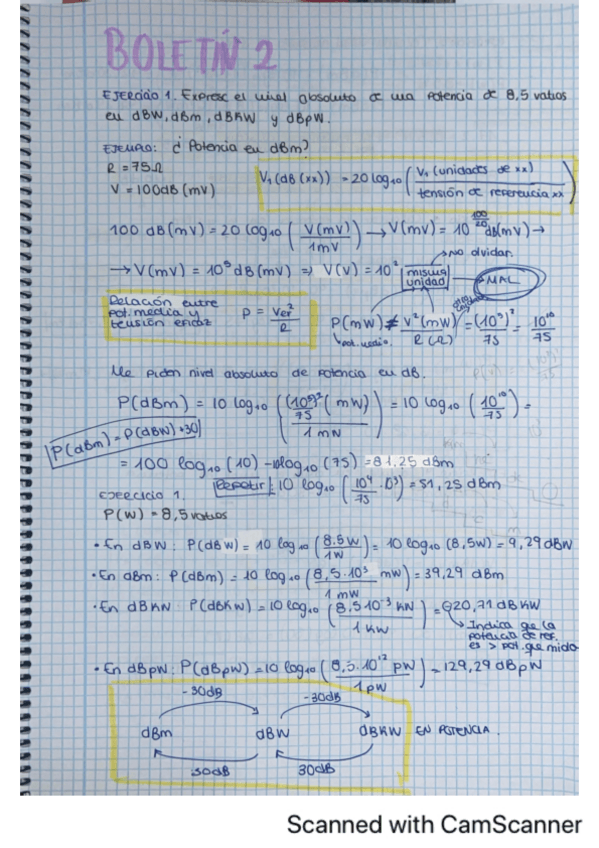 BOLETÍN 2
EJERCICIO 1. Exprese el nivel absoluto de una potencia de 8,5 vatios
en dBW, dBm, dBKW y dBpW.
EJEMPLO: ¿Potencia en dBm?
R = 75Ω
V = 100dB (mV)
V₁(dB(xx)) = 20 log₁₀ (V₁ (unidades de xx) / tensión de referencia xx)
100 dB(mV) = 20 log₁₀ (V(mV) / 1mV) → V(mV) = 10^(100/20) dB(mV) →
→ V(mV) = 10⁵ dB(mV) ⇒ V(V) = 10² misma unidad → MAL
No olvidar.
Relación entre
pot. media y
tensión eficaz
P = Vef² / R
P(mW) ≠ V²(mW) / R(Ω) = (10⁵)² / 75 = 10¹⁰ / 75
pot. media.
Me piden nivel absoluto de potencia en dB.
P(dBm) = 10 log₁₀ ((10⁵)²/75 (mW) / 1 mW) = 10 log₁₀ (10¹⁰ / 75) =
P(dBm) = P(dBW) + 30
= 100 log₁₀ (10) - 10log₁₀ (75) = 81,25 dBm
Repetir: 10 log₁₀ (10⁴/75 · 10³) = 51,25 dBm
EJERCICIO 1.
P(W) = 8,5 vatios
• En dBW: P(dBW) = 10 log₁₀ (8.5W / 1W) = 10 log₁₀ (8,5W) = 9,29 dBW
• En dBm: P(dBm) = 10 log₁₀ (8,5·10³ mW / 1 mW) = 39,29 dBm
• En dBKW P(dBKW) = 10 log₁₀ (8,5·10⁻³ KW / 1 KW) = -20,71 dBKW
Indica que la
potencia de ref.
es > pot. que mido
• En dBpW: P(dBpW) = 10 log₁₀ (8,5·10¹² pW / 1 pW) = 129,29 dBpW
-30dB -30dB
dBm dBW dBKW EN POTENCIA.
30dB 30dB
Scanned with CamScanner